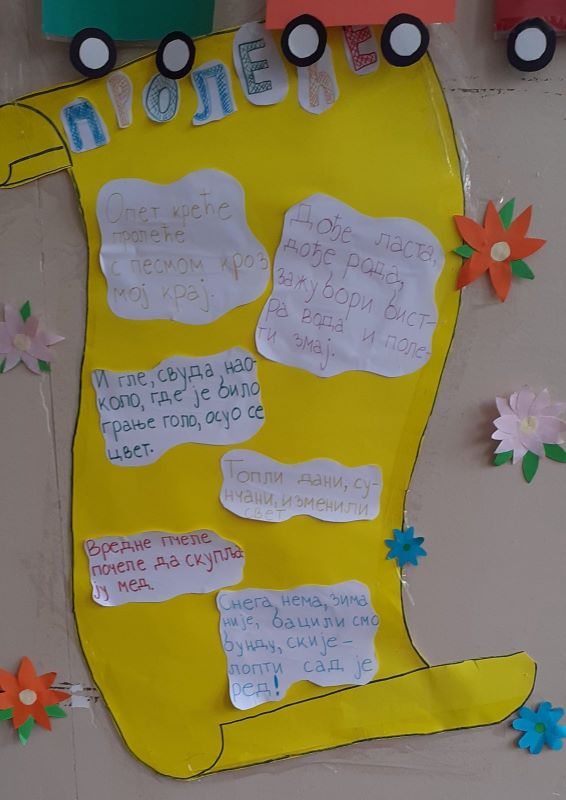 ПРОЛЕЋЕ
Опет креће
пролеће
с песмом кроз
мој крај.
Дође ласта,
дође рода,
зажубори бист-
ра вода и поле-
ти змај.
И гле, свуда, нао-
коло, где је било
грање голо, осуо се
цвет.
Топли дани, су-
нчани, изменили
свет
Вредне пчеле
почеле да скупља-
ју мед.
Снега, нема, зима
није, бацили смо
бунду, скије-
лопти сад је
ред!